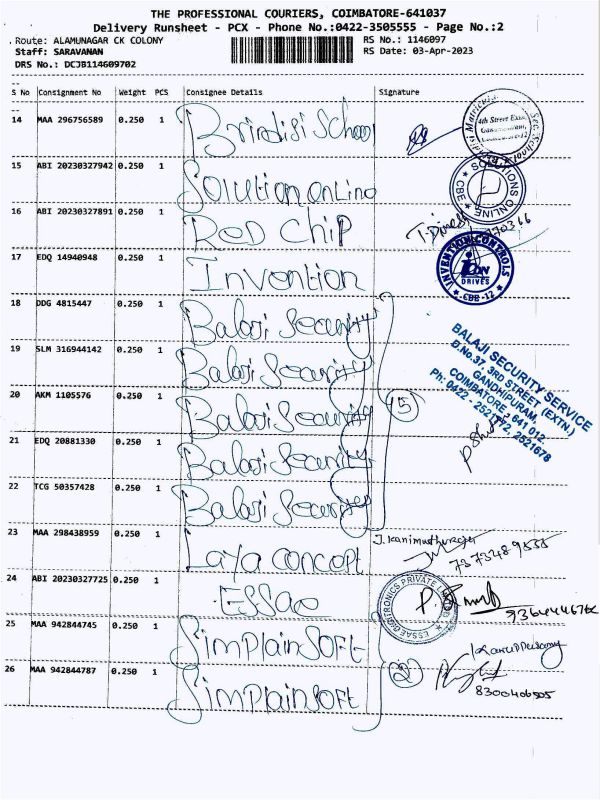 THE PROFESSIONAL COURIERS, COIMBATORE-641037
Delivery Runsheet - PCX - Phone No.:0422-3505555 - Page No.:2
Route: ALAMUNAGAR CK COLONY RS No.: 1146097
Staff: SARAVANAN RS Date: 03-Apr-2023
DRS No.: DCJB114609702
S No Consignment No Weight PCS Consignee Details Signature
14 MAA 296756589 0.250 1 Brindisi School
4th Street Extn.
15 ABI 20230327942 0.250 1 Solution online
SOLUTIONS ONLINE
CBE
16 ABI 20230327891 0.250 1 RED Chip
17 EDQ 14940948 0.250 1 Invention
INVENTION CONTROLS
DRIVES
CBE-12
18 DDG 4815447 0.250 1 Balaji Security
19 SLM 316944142 0.250 1 Balaji Security
20 AKM 1105576 0.250 1 Balaji Security
21 EDQ 20881330 0.250 1 Balaji Security
22 TCG 50357428 0.250 1 Balaji Security
BALAJI SECURITY SERVICE
D.No.37, 3RD STREET (EXTN.)
GANDHIPURAM,
COIMBATORE - 641 012
Ph: 0422 - 2521772, 2521678
23 MAA 298438959 0.250 1 Laya concept
24 ABI 20230327725 0.250 1 ESSae
25 MAA 942844745 0.250 1 SimplainSoft
26 MAA 942844787 0.250 1 SimplainSoft
(2)
8300406505